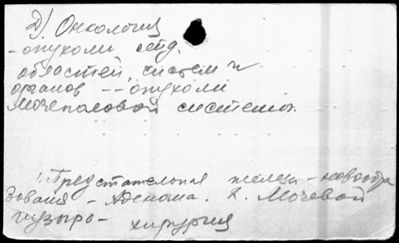 Д) Онкология
- опухоли отд.
областей, систем и
органов -- опухоли
Мочеполовой системы.
1. Предстательная железа - новообра
зования - Аденома. 2. Мочевой
пузырь - хирургия